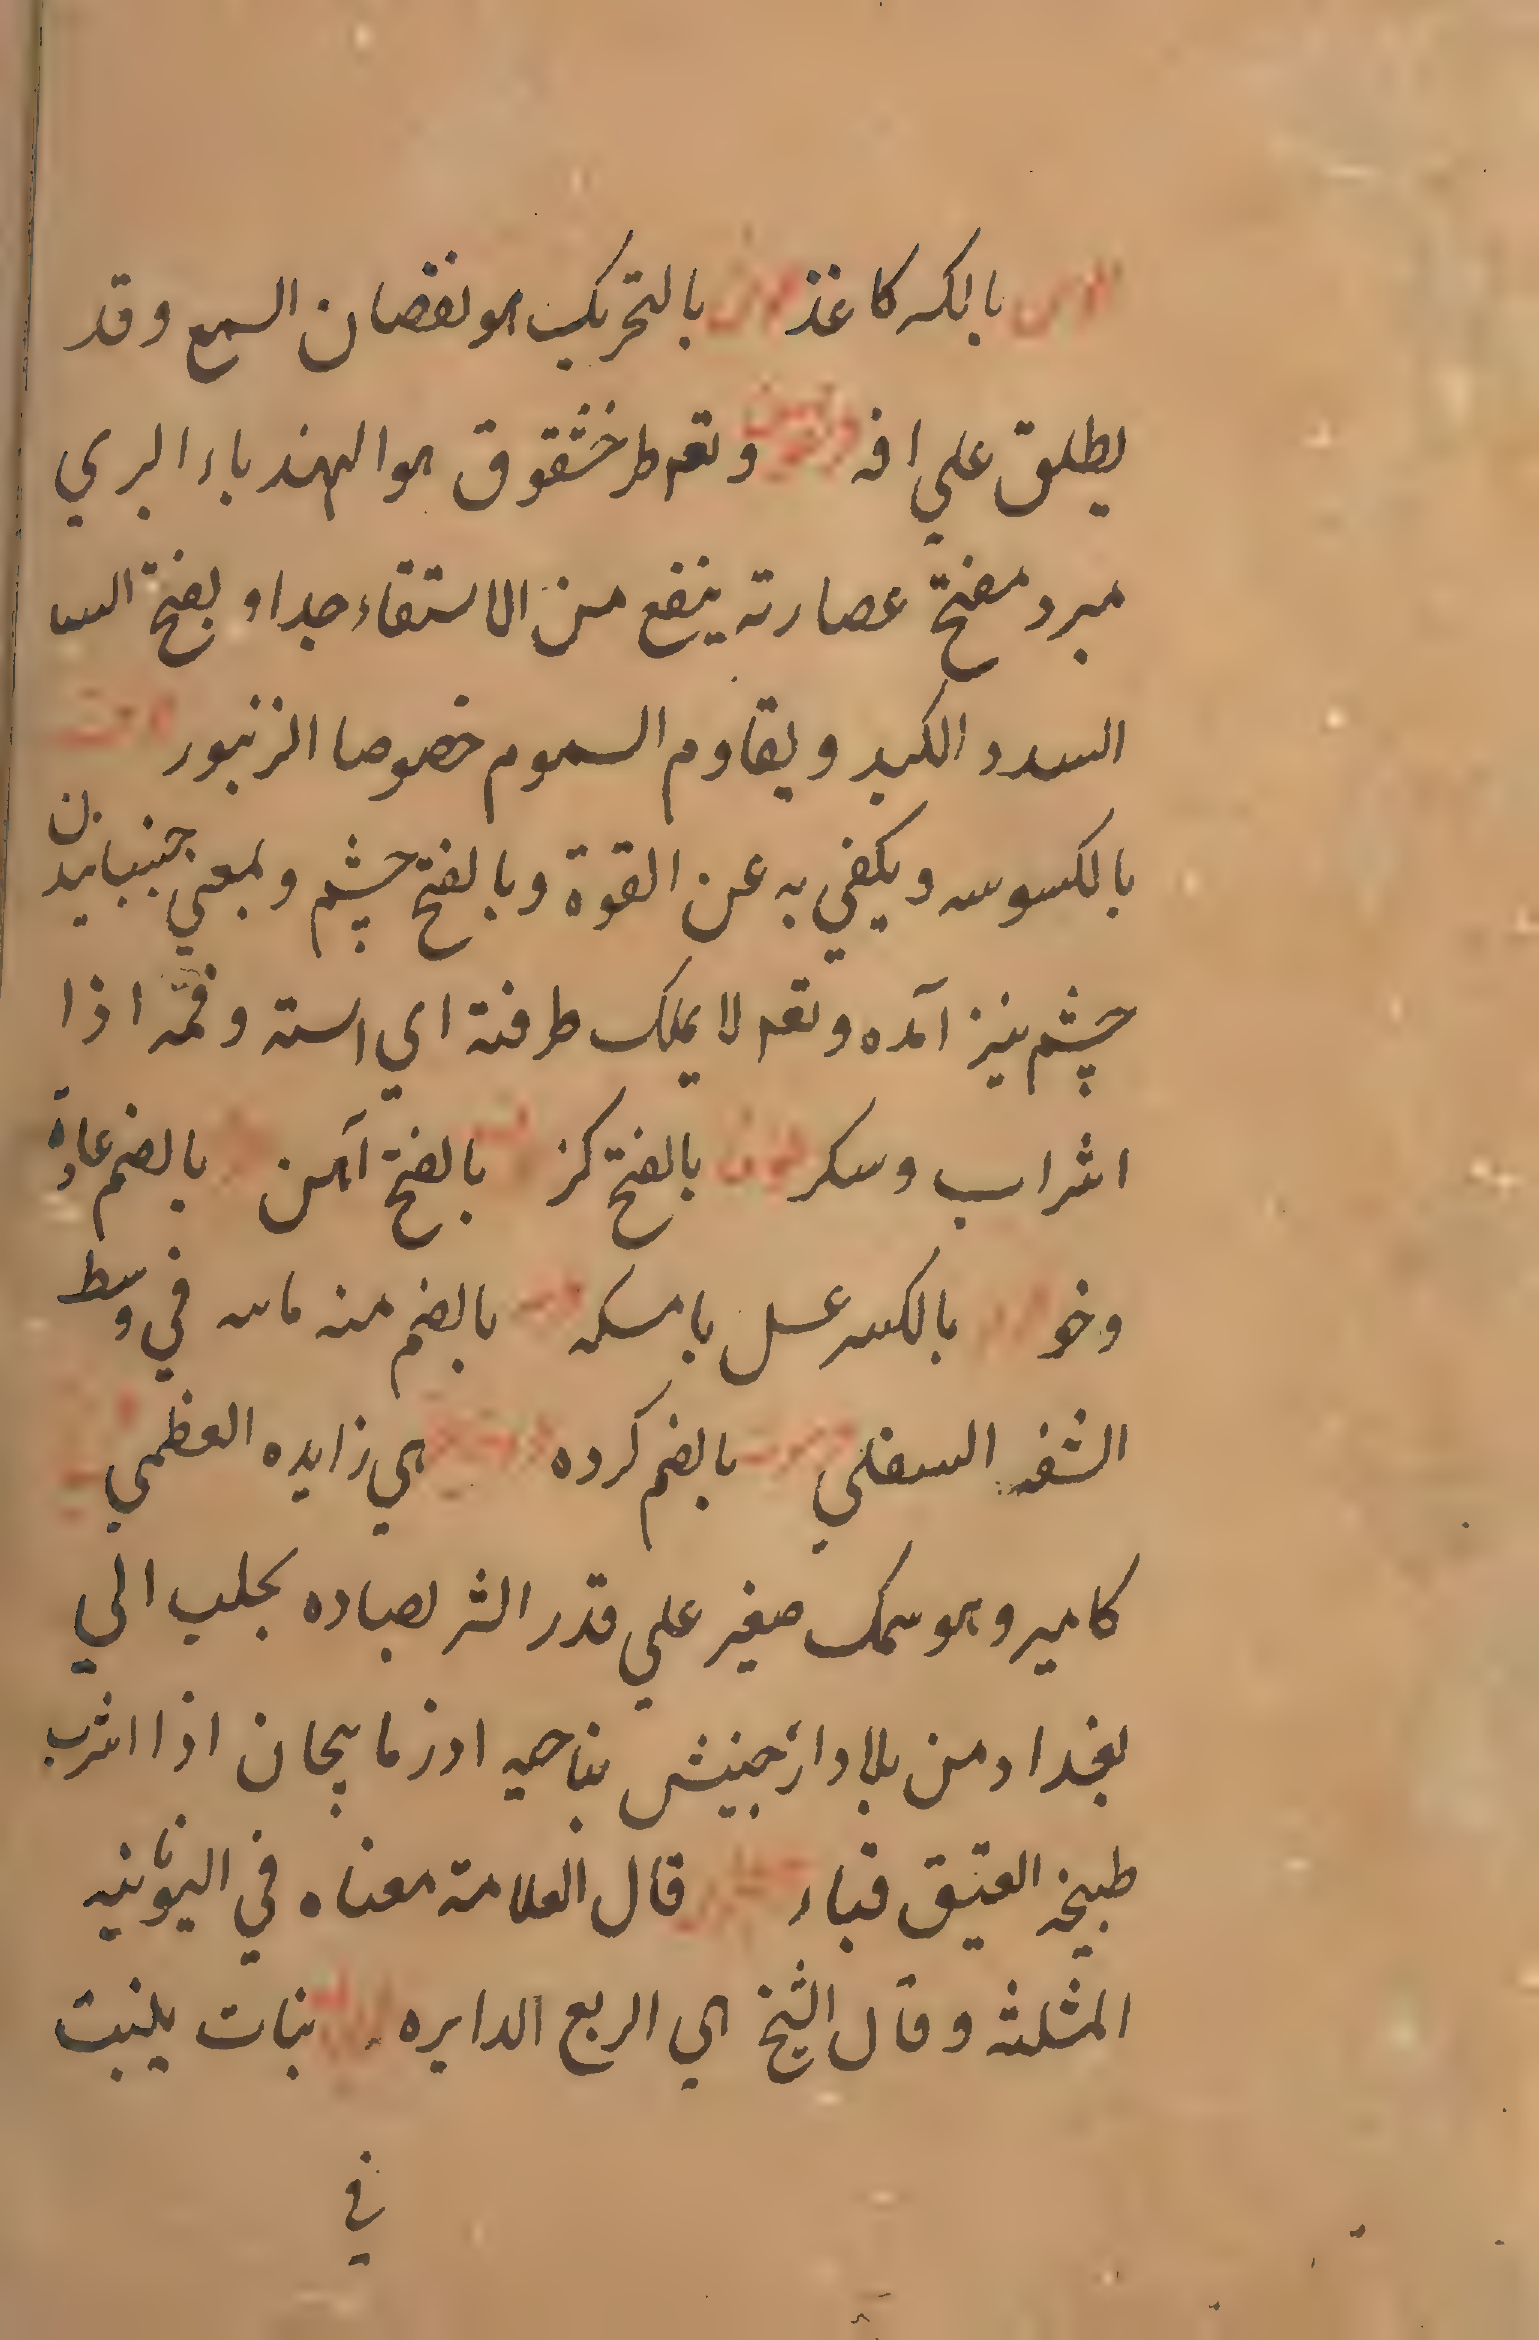 بالكسر كاغذ بالتحريك هو نقصان السمع وقد
يطلق علي افه ويقم طرخشقوق هو الهندباء البري
مبرد مفتح عصارته ينفع من الاستقاء جدا و يفتح السا
السدد الكبد ويقاوم السموم خصوصا الزنبور
بالكسوسه ويكفي به عن القوة وبالفتح چشم وبمعني جنبانيدن
چشم نيز آمده ويقم لا يملك طرفته اي استه وفمه اذا
اشراب وسكر بالفتح كز بالفتح آهن بالضم عادة
وخو بالكسر عسل بامسكه بالضم منه ماسه في وسط
الشفه السفلي بالضم كرده هي زايده العظمي
كامير وهو سمك صغير علي قدر الشر لصباده يجلب الي
بغداد من بلاد ارجنيش بناحيه ادزمايجان اذا اشرب
طبيخه العتيق قباء قال العلامة معناه في اليونانيه
المثلثه وقال الشيخ هي الربع الدايره نبات ينبت
في